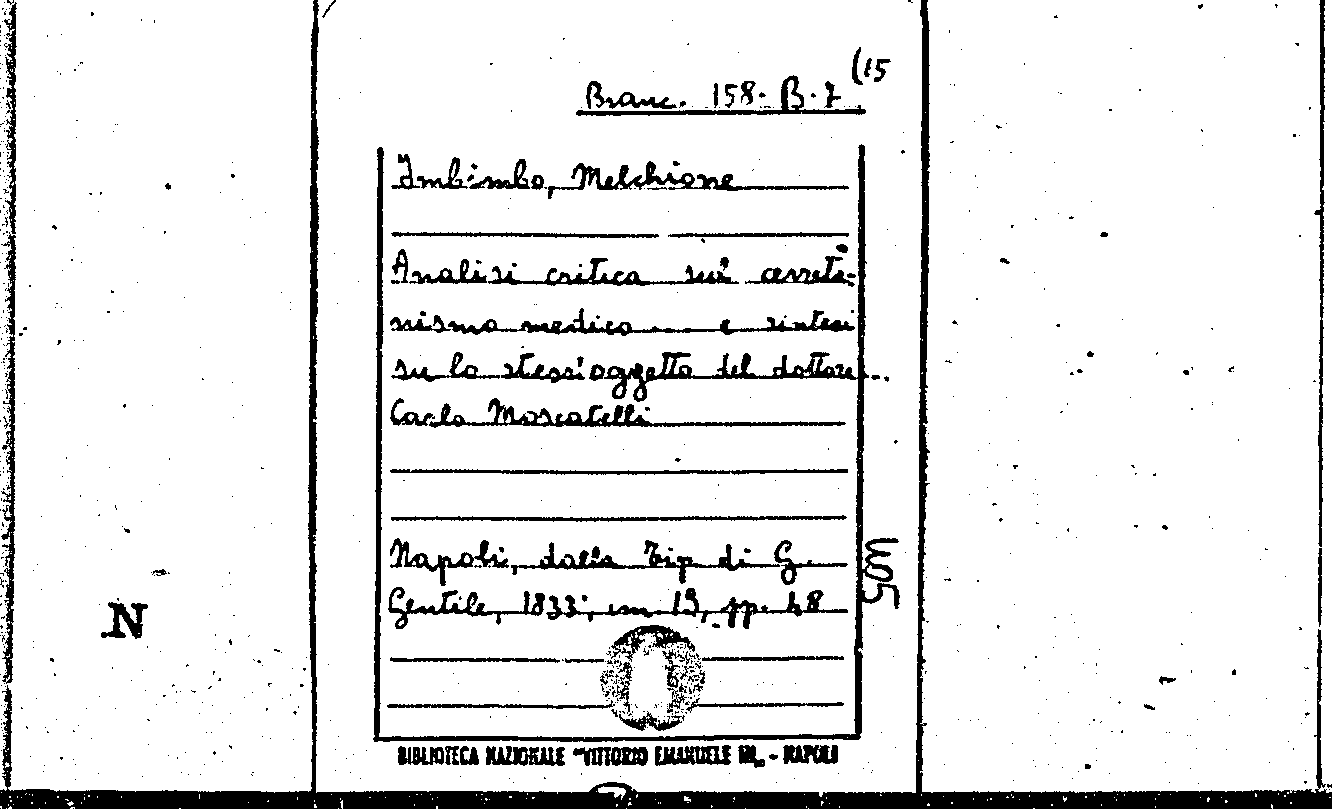 (15
Branc. 158. B. 7
Imbimbo, Melchione
Analisi critica sui cerreta-
nismo medico .... e sintesi
su lo stess'oggetto del dottore...
Carlo Moscatelli
Napoli, dalla Tip di G.
Gentile, 1833; in 19, pp. 48
N
BIBLIOTECA NAZIONALE "VITTORIO EMANUELE III„ - NAPOLI